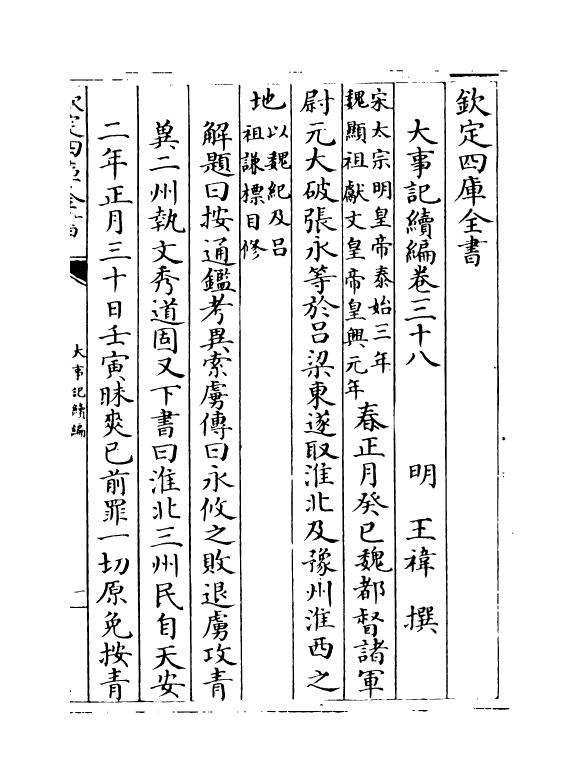 欽定四庫全書
大事記續編卷三十八 明 王禕 撰
宋太宗明皇帝泰始三年
魏顯祖獻文皇帝皇興元年
春正月癸巳魏都督諸軍
尉元大破張永等於呂梁東遂取淮北及豫州淮西之
地
以魏紀及呂
祖謙標目修
解題曰按通鑑考異索虜傳曰永攸之敗退虜攻青
兾二州執文秀道固又下書曰淮北三州民自天安
二年正月三十日壬寅昧爽已前罪一切原免按青
欽定四庫全書
大事記續編